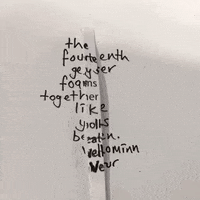 the
fourteenth
geyser
foams
together
like
yolks
beaten.